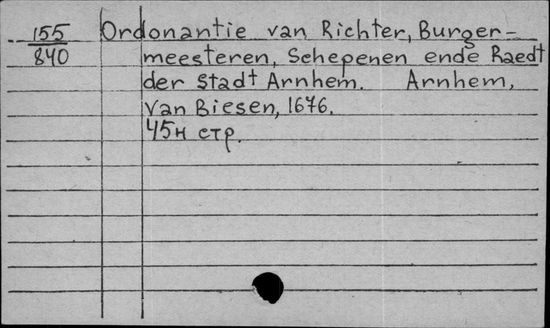 155
840
Ordonantie van Richter, Burger-
meesteren, Schepenen ende Raedt
der Stadt Arnhem. Arnhem,
van Biesen, 1676.
45н стр.